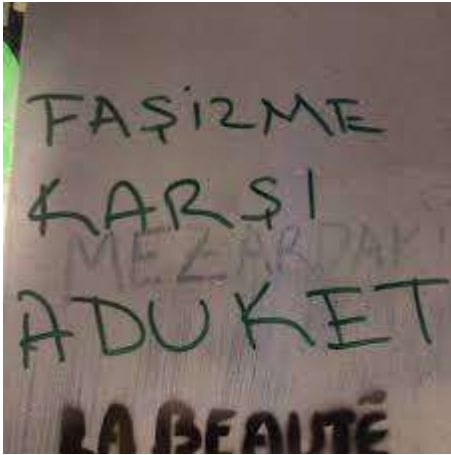 FAŞİZME
KARŞI
MEZARDAKİ
ADUKET
LA BEAUTÉ